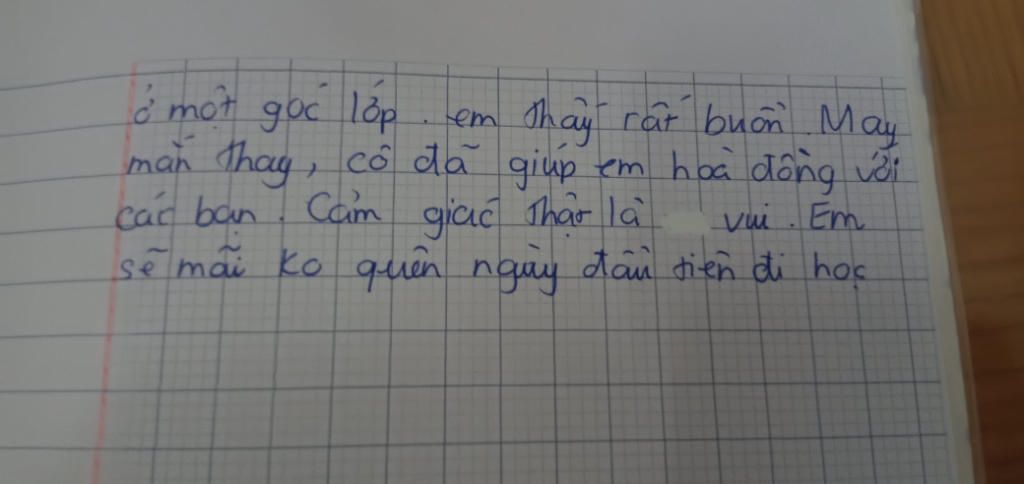 ở một góc lớp. em thấy rất buồn. May
mắn thay, cô đã giúp em hoà đồng với
các bạn. Cảm giác thật là vui. Em
sẽ mãi ko quên ngày đầu tiên đi học